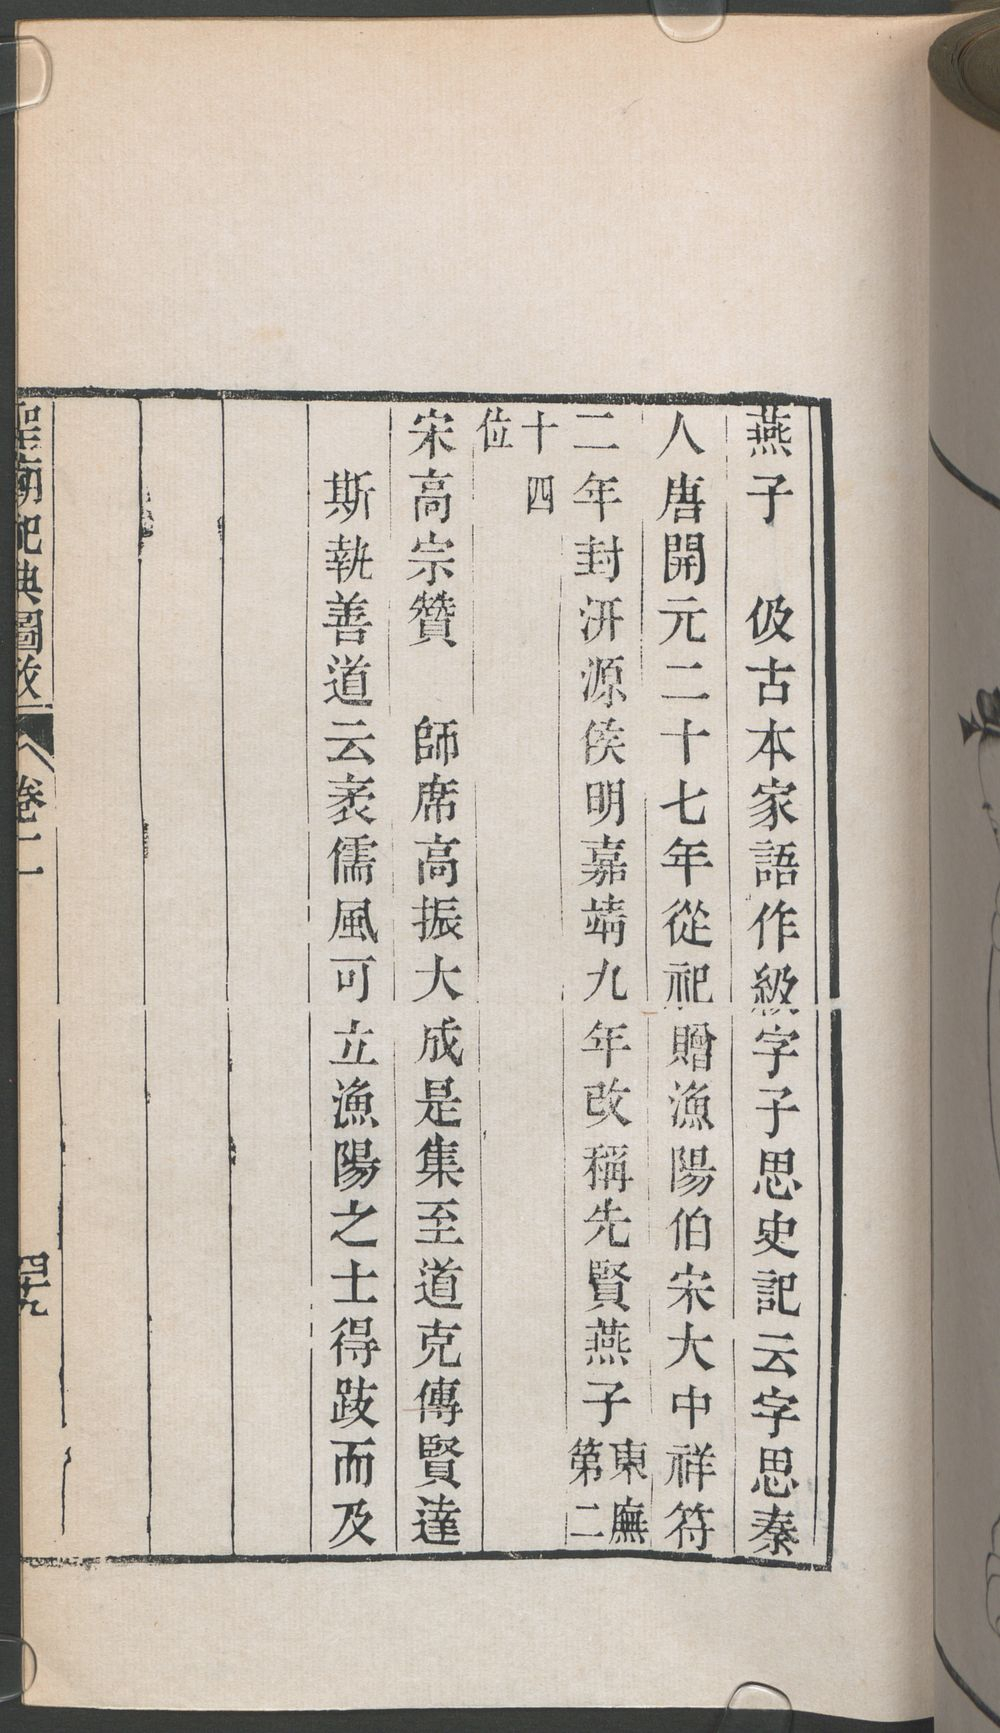 燕子　伋古本家語作級字子思史記云字思秦
人唐開元二十七年從祀贈漁陽伯宋大中祥符
二年封汧源侯明嘉靖九年改稱先賢燕子東廡第二
十四
位
宋高宗贊　師席高振大成是集至道克傳賢達
斯執善道云袤儒風可立漁陽之士得跂而及
聖廟祀典圖攷　卷二　四十九